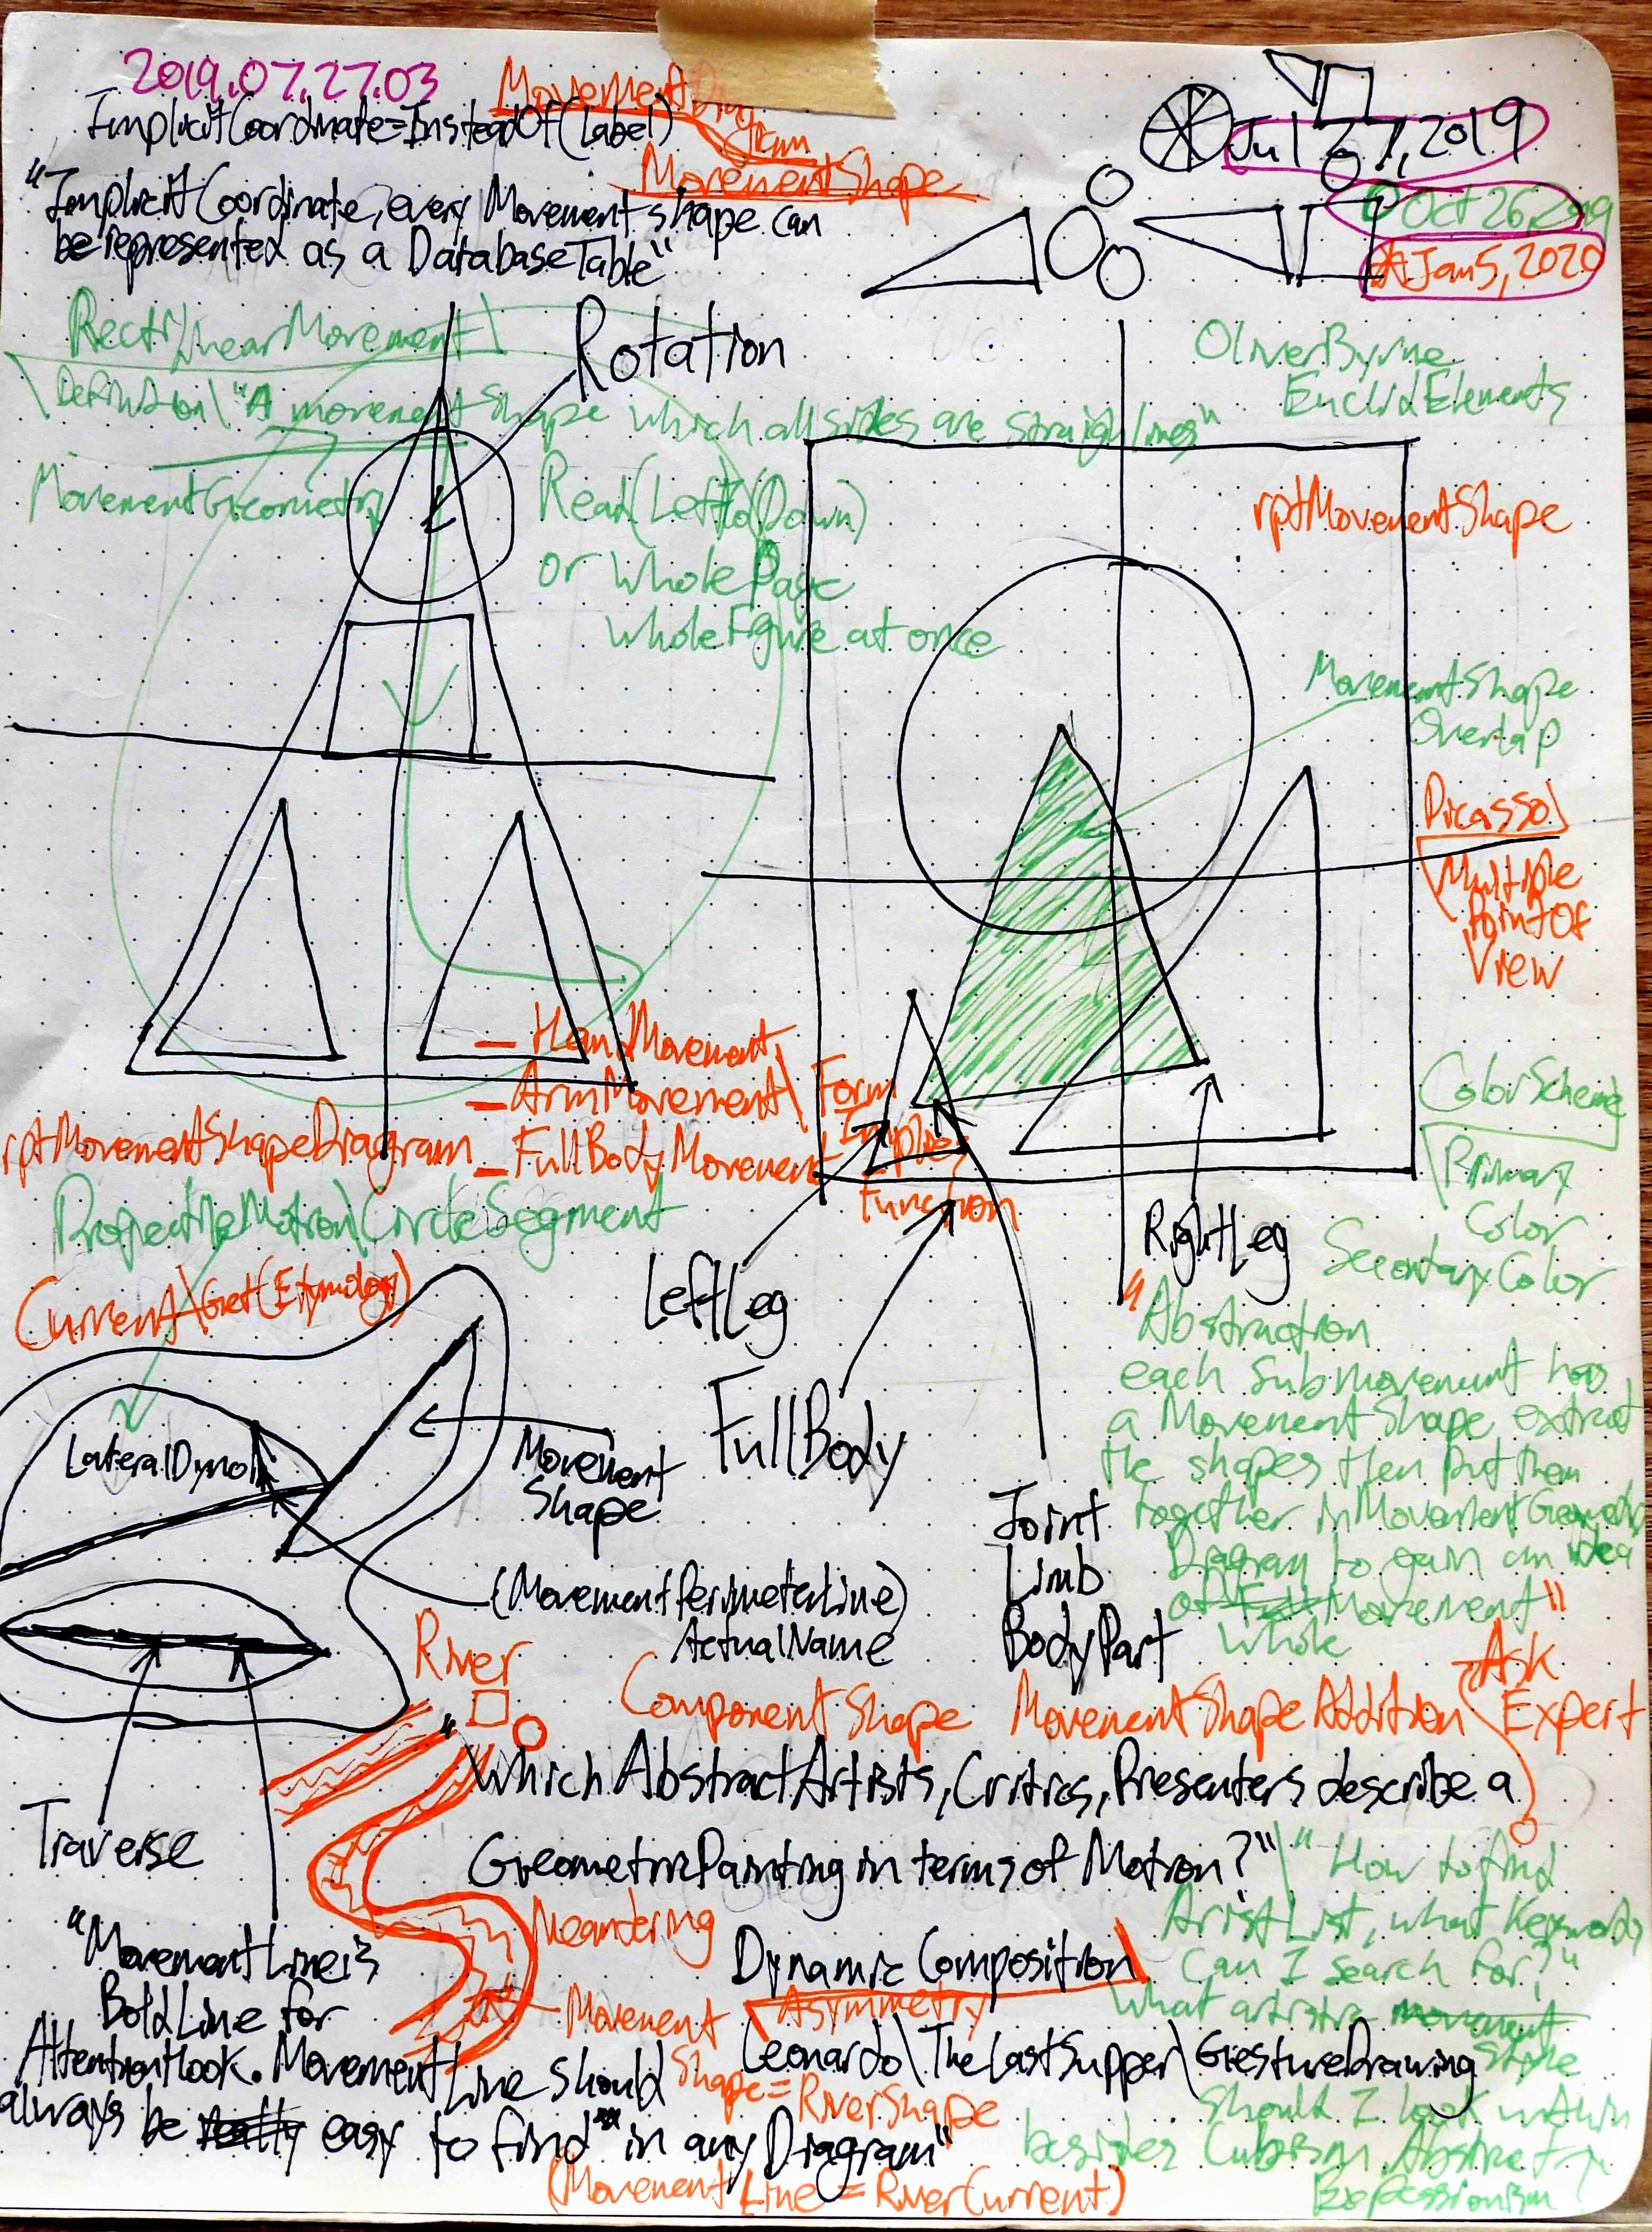 2019.07.27.03
MovementDiagram
ImplicitCoordinate=InsteadOf(Label)
MovementShape
Jul 27, 2019
Oct 26, 2019
Jan 5, 2020
"ImplicitCoordinate, every Movement shape can
be represented as a DatabaseTable"
RectilinearMovement
Rotation
OliverByrne
EuclidElements
Definition\"A movement shape which all sides are straight lines"
MovementGeometry
Read(LeftTo(Down)
or WholePage
WholeFigure at once
rptMovementShape
MovementShape
Overlap
Picasso
Multiple
PointOf
View
- HandMovement
- ArmMovement
- FullBodyMovement
Form
Implies
Function
ColorScheme
Primary
Color
SecondaryColor
rptMovementShapeDiagram
ProjectileMotion\CircleSegment
Current\Get(Etymology)
LeftLeg
RightLeg
FullBody
LateralDyno
Movement
Shape
(MovementPerimeterLine)
ActualName
Joint
Limb
BodyPart
"Abstraction
each Submovement has
a MovementShape, extract
the shapes then put them
together in MovementGeometry
Diagram to gain an idea
of Full Movement"
Whole
River
ComponentShape MovementShapeAddition
Ask
Expert
"Which AbstractArtists, Critics, Presenters describe a
GeometricPainting in terms of Motion?"
"How to find
ArtistList, what Keywords
Can I search for?"
What artistic movement
Style
Should I look within
besides Cubism, Abstract
Expressionism
Traverse
Meandering
Dynamic Composition
Asymmetry
Leonardo\TheLastSupper\GestureDrawing
Movement
Shape=
RiverShape
"MovementLine is
BoldLine for
AttentionHook. MovementLine should
always be really easy to find" in any Diagram"
(MovementLine = RiverCurrent)